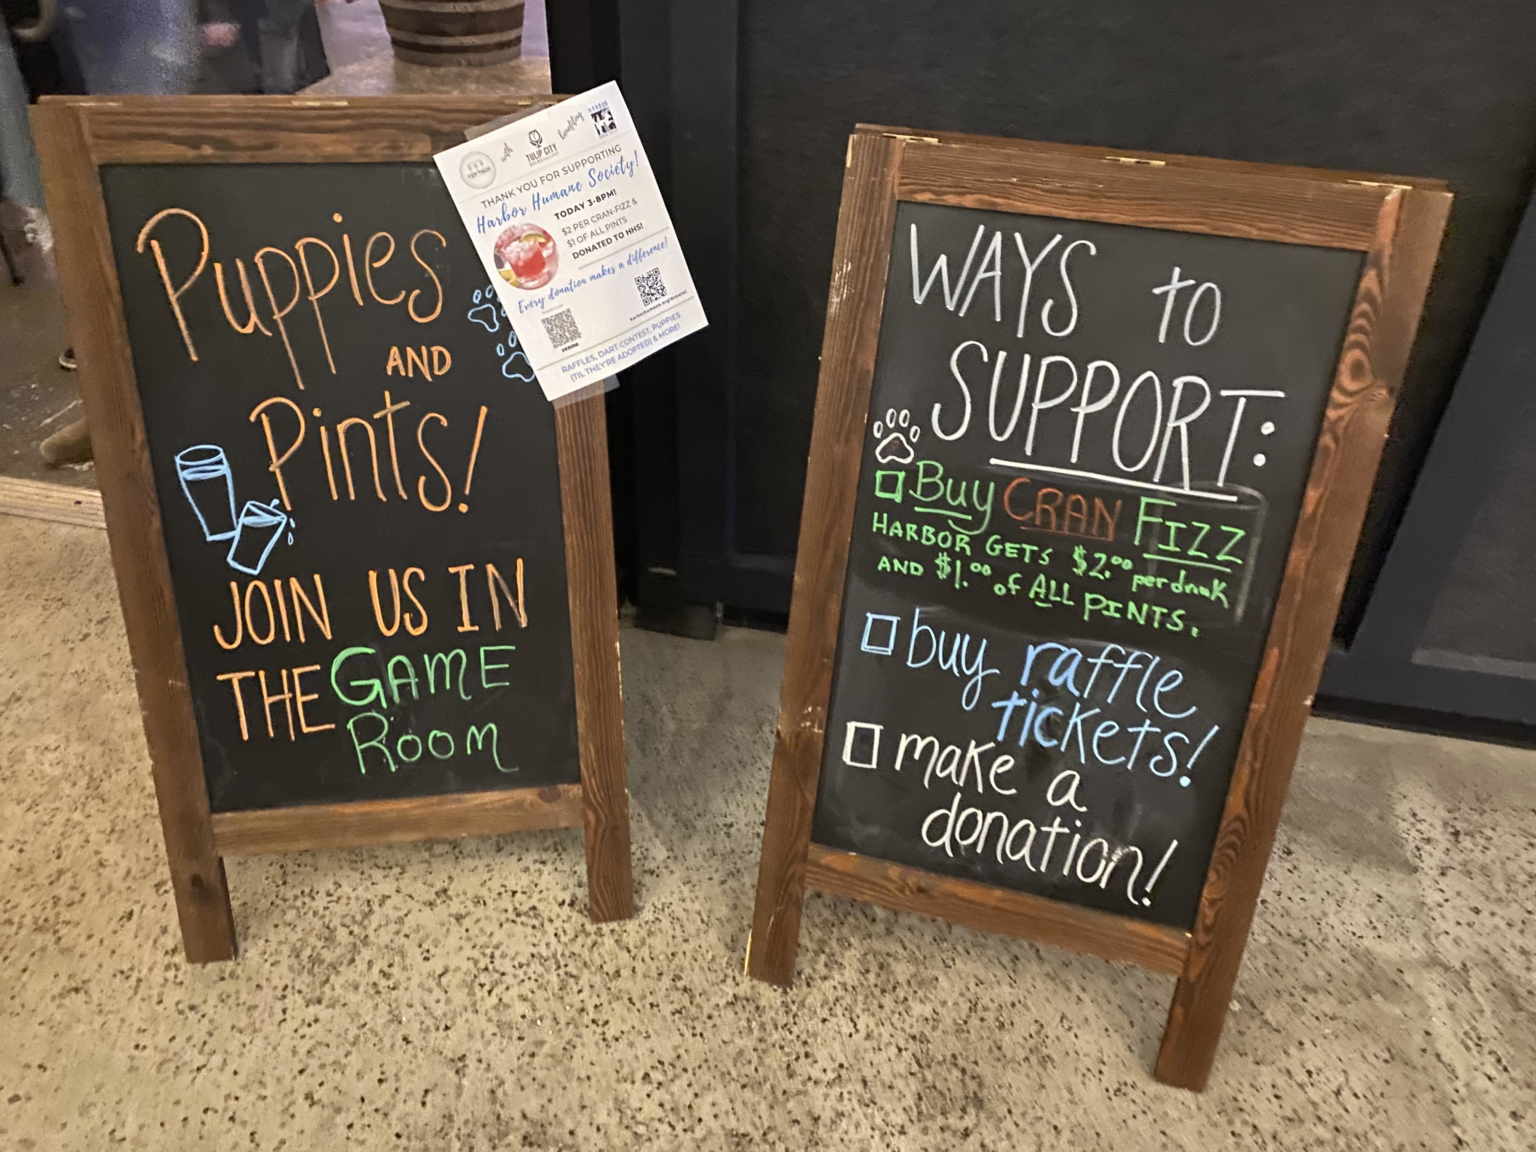 Puppies
AND
Pints!
JOIN US IN
THE GAME
ROOM
with
TULIP CITY
benefiting
THANK YOU FOR SUPPORTING
Harbor Humane Society!
TODAY 3-8PM!
$2 PER CRAN-FIZZ &
$1 OF ALL PINTS
DONATED TO HHS!
Every donation makes a difference!
harborhumane.org/donate/
VENMO
RAFFLES, DART CONTEST, PUPPIES
(TIL THEY'RE ADOPTED) & MORE!
WAYS to
SUPPORT:
Buy CRAN FIZZ
HARBOR GETS $2.00 per drink
AND $1.00 of ALL PINTS.
buy raffle
tickets!
make a
donation!